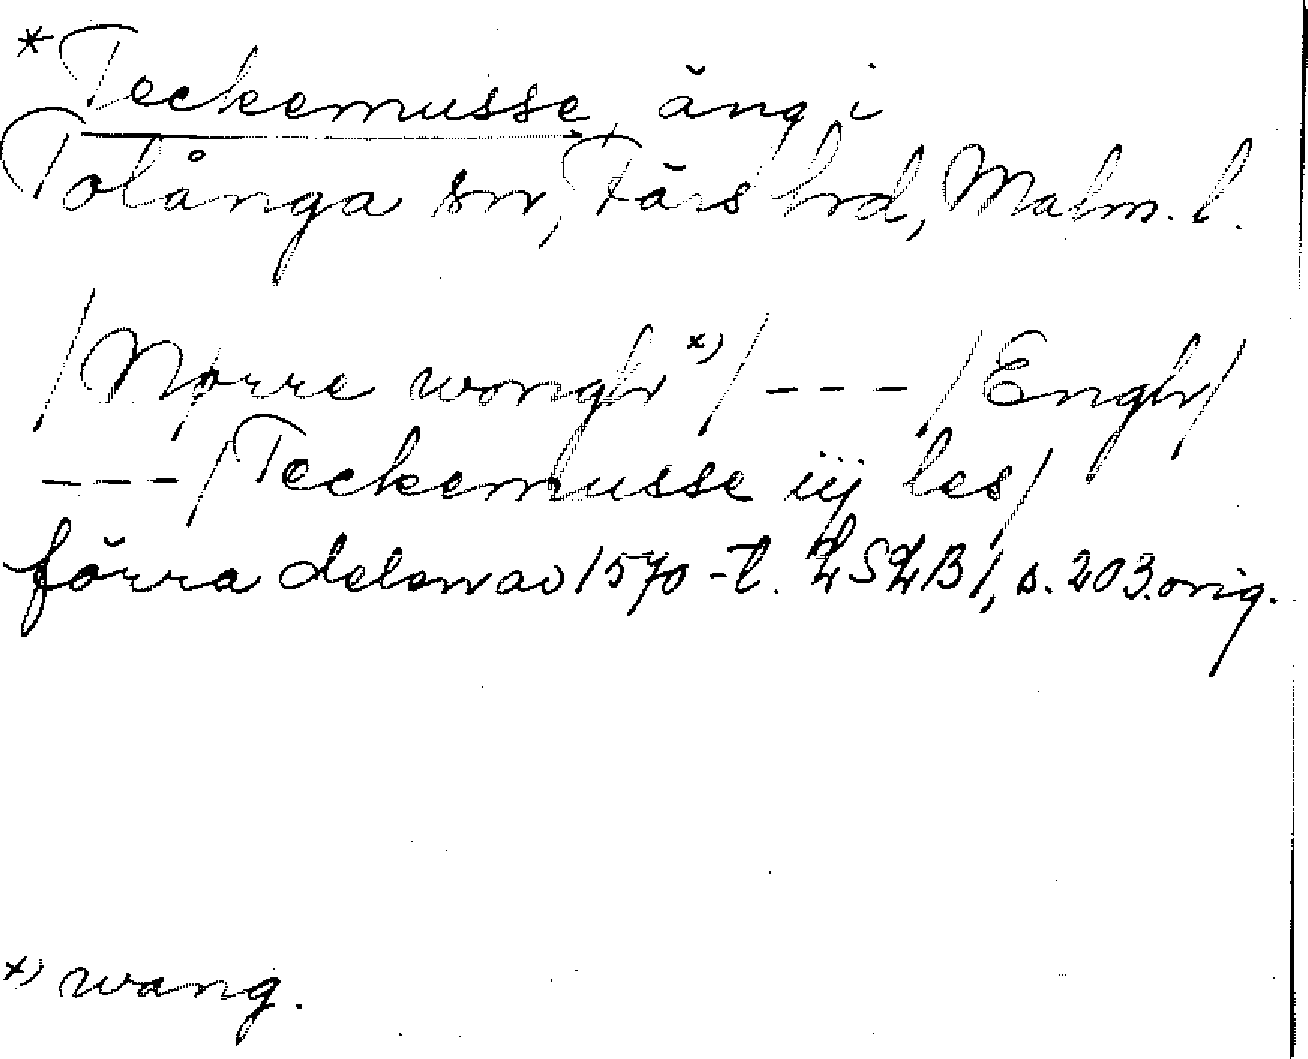 *Teckemusse, äng i
Tolånga sn, Färs hrd, Malm. l.
/Nørre wongh x)/ --- /Engh/
--- /Teckemusse iij les/
förra delen av 1570-t. LSLB 1, s. 203. orig.
x) wang.